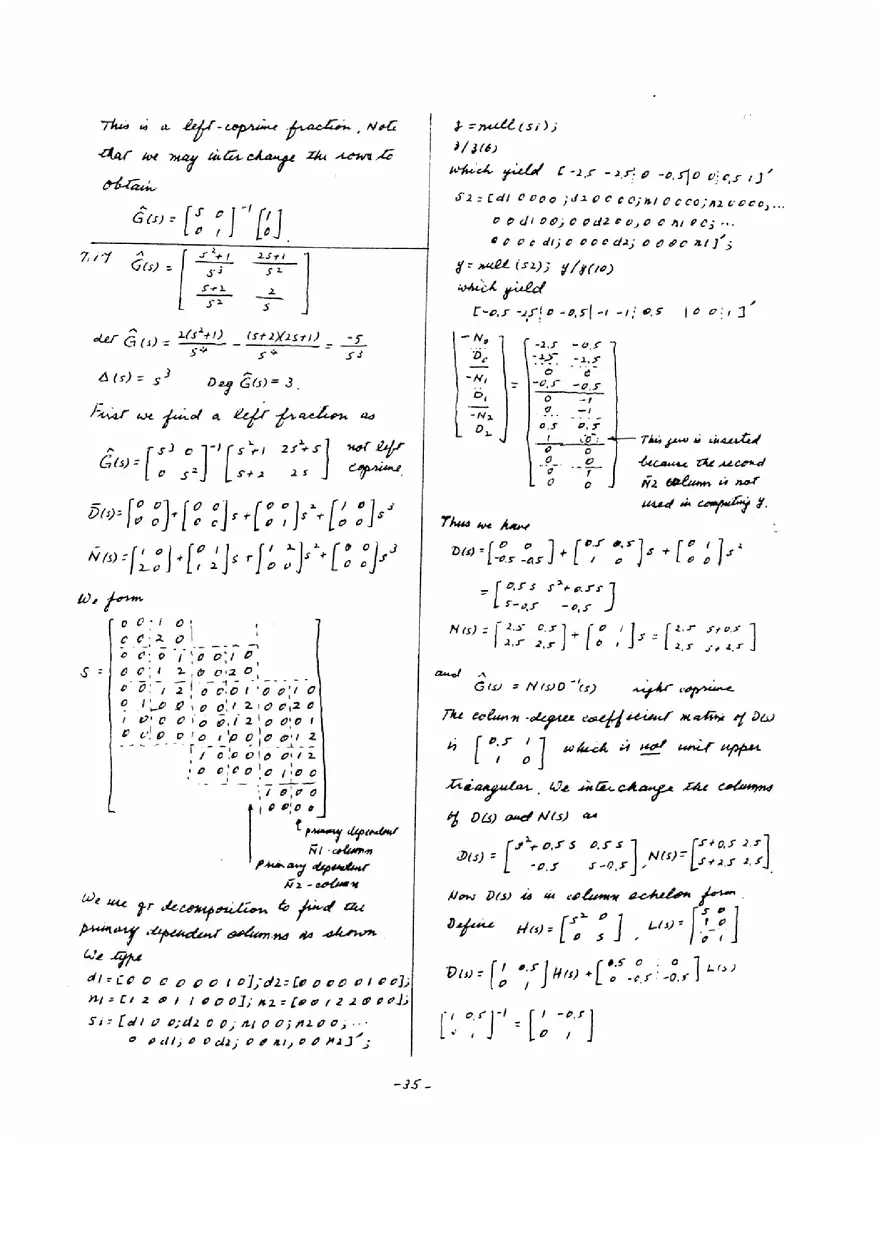 This is a left-coprime fraction. Note
that we may interchange the rows to
obtain
Ĝ(s) = [s 0; 0 1]^-1 [1; 0].
7.17 Ĝ(s) = [(s^2+1)/s^3 (2s+1)/s^2; (s+2)/s^2 2/s]
det Ĝ(s) = 2(s^2+1)/s^4 - (s+2)(2s+1)/s^4 = -5/s^3
Δ(s) = s^3 Deg Ĝ(s) = 3.
First we find a left fraction as
Ĝ(s) = [s^3 0; 0 s^2]^-1 [s^2+1 2s^2+s; s+2 2s] not left coprime.
D̄(s) = [0 0; 0 0] + [0 0; 0 0]s + [0 0; 0 1]s^2 + [1 0; 0 0]s^3
N̄(s) = [1 0; 2 0] + [0 1; 1 2]s + [1 2; 0 0]s^2 + [0 0; 0 0]s^3
We form
S =
0 0 1 0
0 0 2 0
0 0 0 1 0 0 1 0
0 0 1 2 0 0 2 0
0 0 1 2 0 0 0 1 0 0 1 0
0 1 0 0 0 0 1 2 0 0 2 0
1 0 0 0 0 0 1 2 0 0 0 1
0 0 0 0 0 1 0 0 0 0 1 2
1 0 0 0 0 0 1 2
0 0 0 0 0 1 0 0
1 0 0 0
0 0 0 0
primary dependent
N̄1 column
primary dependent
N̄2-column
We use qr decomposition to find the
primary dependent columns as shown
We type
d1=[0 0 0 0 0 0 1 0];d2=[0 0 0 0 0 1 0 0];
n1=[1 2 0 1 1 0 0 0];n2=[0 0 1 2 2 0 0 0];
S1=[d1 0 0;d2 0 0;n1 0 0;n2 0 0;...
0 0 d1;0 0 d2;0 0 n1;0 0 n2]';
z=null(S1);
z/z(6)
which yield [-2.5 -2.5 0 -0.5 0 0 0.5 1]'
S2=[d1 0 0 0 0;d2 0 0 0 0;n1 0 0 0 0;n2 0 0 0 0;...
0 0 d1 0 0;0 0 d2 0 0;0 0 n1 0 0;...
0 0 0 0 d1;0 0 0 0 d2;0 0 0 0 n1]';
y=null(S2); y/y(10)
which yield
[-0.5 -2.5 0 -0.5 -1 -1 0.5 0 0 1]'
[-N0; D0; -N1; D1; -N2; D2] = [-2.5 -0.5; -2.5 -2.5; 0 0; -0.5 -0.5; 0 -1; 0 -1; 0.5 0.5; 1 0; 0 0; 0 0; 0 1; 0 0]
This zero is inserted
because the second
N̄2 column is not
used in computing y.
Thus we have
D(s) = [0 0; -0.5 -0.5] + [0.5 0.5; 1 0]s + [0 1; 0 0]s^2
= [0.5s s^2+0.5s; s-0.5 -0.5]
N(s) = [2.5 0.5; 2.5 2.5] + [0 1; 0 1]s = [2.5 s+0.5; 2.5 s+2.5]
and
Ĝ(s) = N(s)D^-1(s) right coprime
The column-degree coefficient matrix of D(s)
is [0.5 1; 1 0] which is not unit upper
triangular. We interchange the columns
of D(s) and N(s) as
D(s) = [s^2+0.5s 0.5s; -0.5 s-0.5], N(s) = [s+0.5 2.5; s+2.5 2.5].
Now D(s) is in column echelon form.
Define H(s) = [s^2 0; 0 s], L(s) = [s 0; 1 0; 0 1]
D(s) = [1 0.5; 0 1]H(s) + [0.5 0 0; 0 -0.5 -0.5]L(s)
[1 0.5; 0 1]^-1 = [1 -0.5; 0 1]
-35-